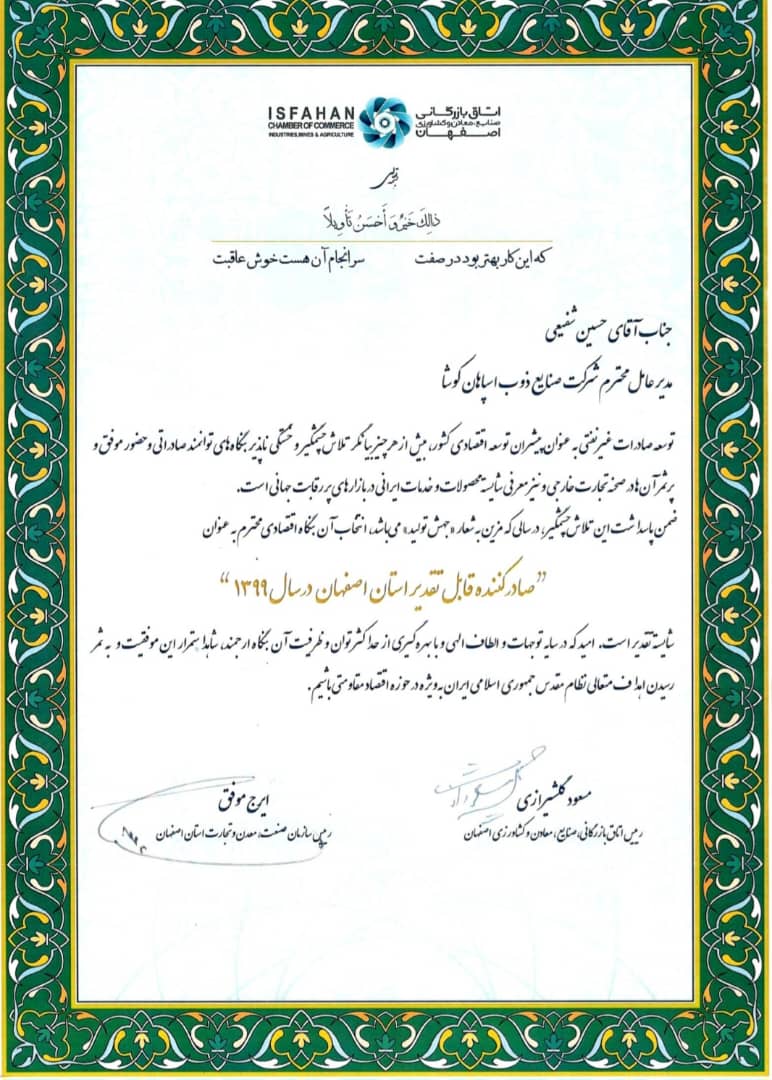 ISFAHAN
CHAMBER OF COMMERCE
INDUSTRIES, MINES & AGRICULTURE
اتاق بازرگانی
صنایع، معادن و کشاورزی
اصفهان
ذالِكَ خَیرٌ وَ أَحسَنُ تَأویلاً
که این کار بهتر بود در صفت سرانجام آن هست خوش عاقبت
جناب آقای حسین شفیعی
مدیر عامل محترم شرکت صنایع ذوب اسپاهان کوشا
توسعه صادرات غیر نفتی به عنوان پیشران توسعه اقتصادی کشور، بیش از هر چیز بیانگر تلاش چشمگیر و خستگی ناپذیر بنگاه های توانمند صادراتی و حضور موفق و
پر ثمر آن ها در صحنه تجارت خارجی و نیز معرفی شایسته محصولات و خدمات ایرانی در بازارهای پر رقابت جهانی است.
ضمن پاسداشت این تلاش چشمگیر، در سالی که مزین به شعار «جهش تولید» می باشد، انتخاب آن بنگاه اقتصادی محترم به عنوان
”صادرکننده قابل تقدیر استان اصفهان در سال ۱۳۹۹“
شایسته تقدیر است. امید که در سایه توجهات و الطاف الهی و با بهره گیری از حداکثر توان و ظرفیت آن بنگاه ارجمند، شاهد استمرار این موفقیت و به ثمر
رسیدن اهداف متعالی نظام مقدس جمهوری اسلامی ایران به ویژه در حوزه اقتصاد مقاومتی باشیم.
مسعود گلشیرازی
رییس اتاق بازرگانی، صنایع، معادن و کشاورزی اصفهان
ایرج موفق
رییس سازمان صنعت، معدن و تجارت استان اصفهان